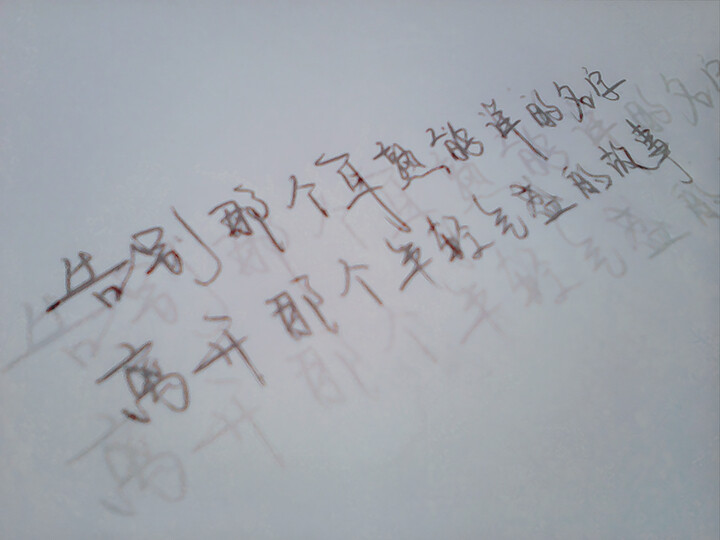 告别那个耳熟能详的名字
离开那个年轻气盛的故事